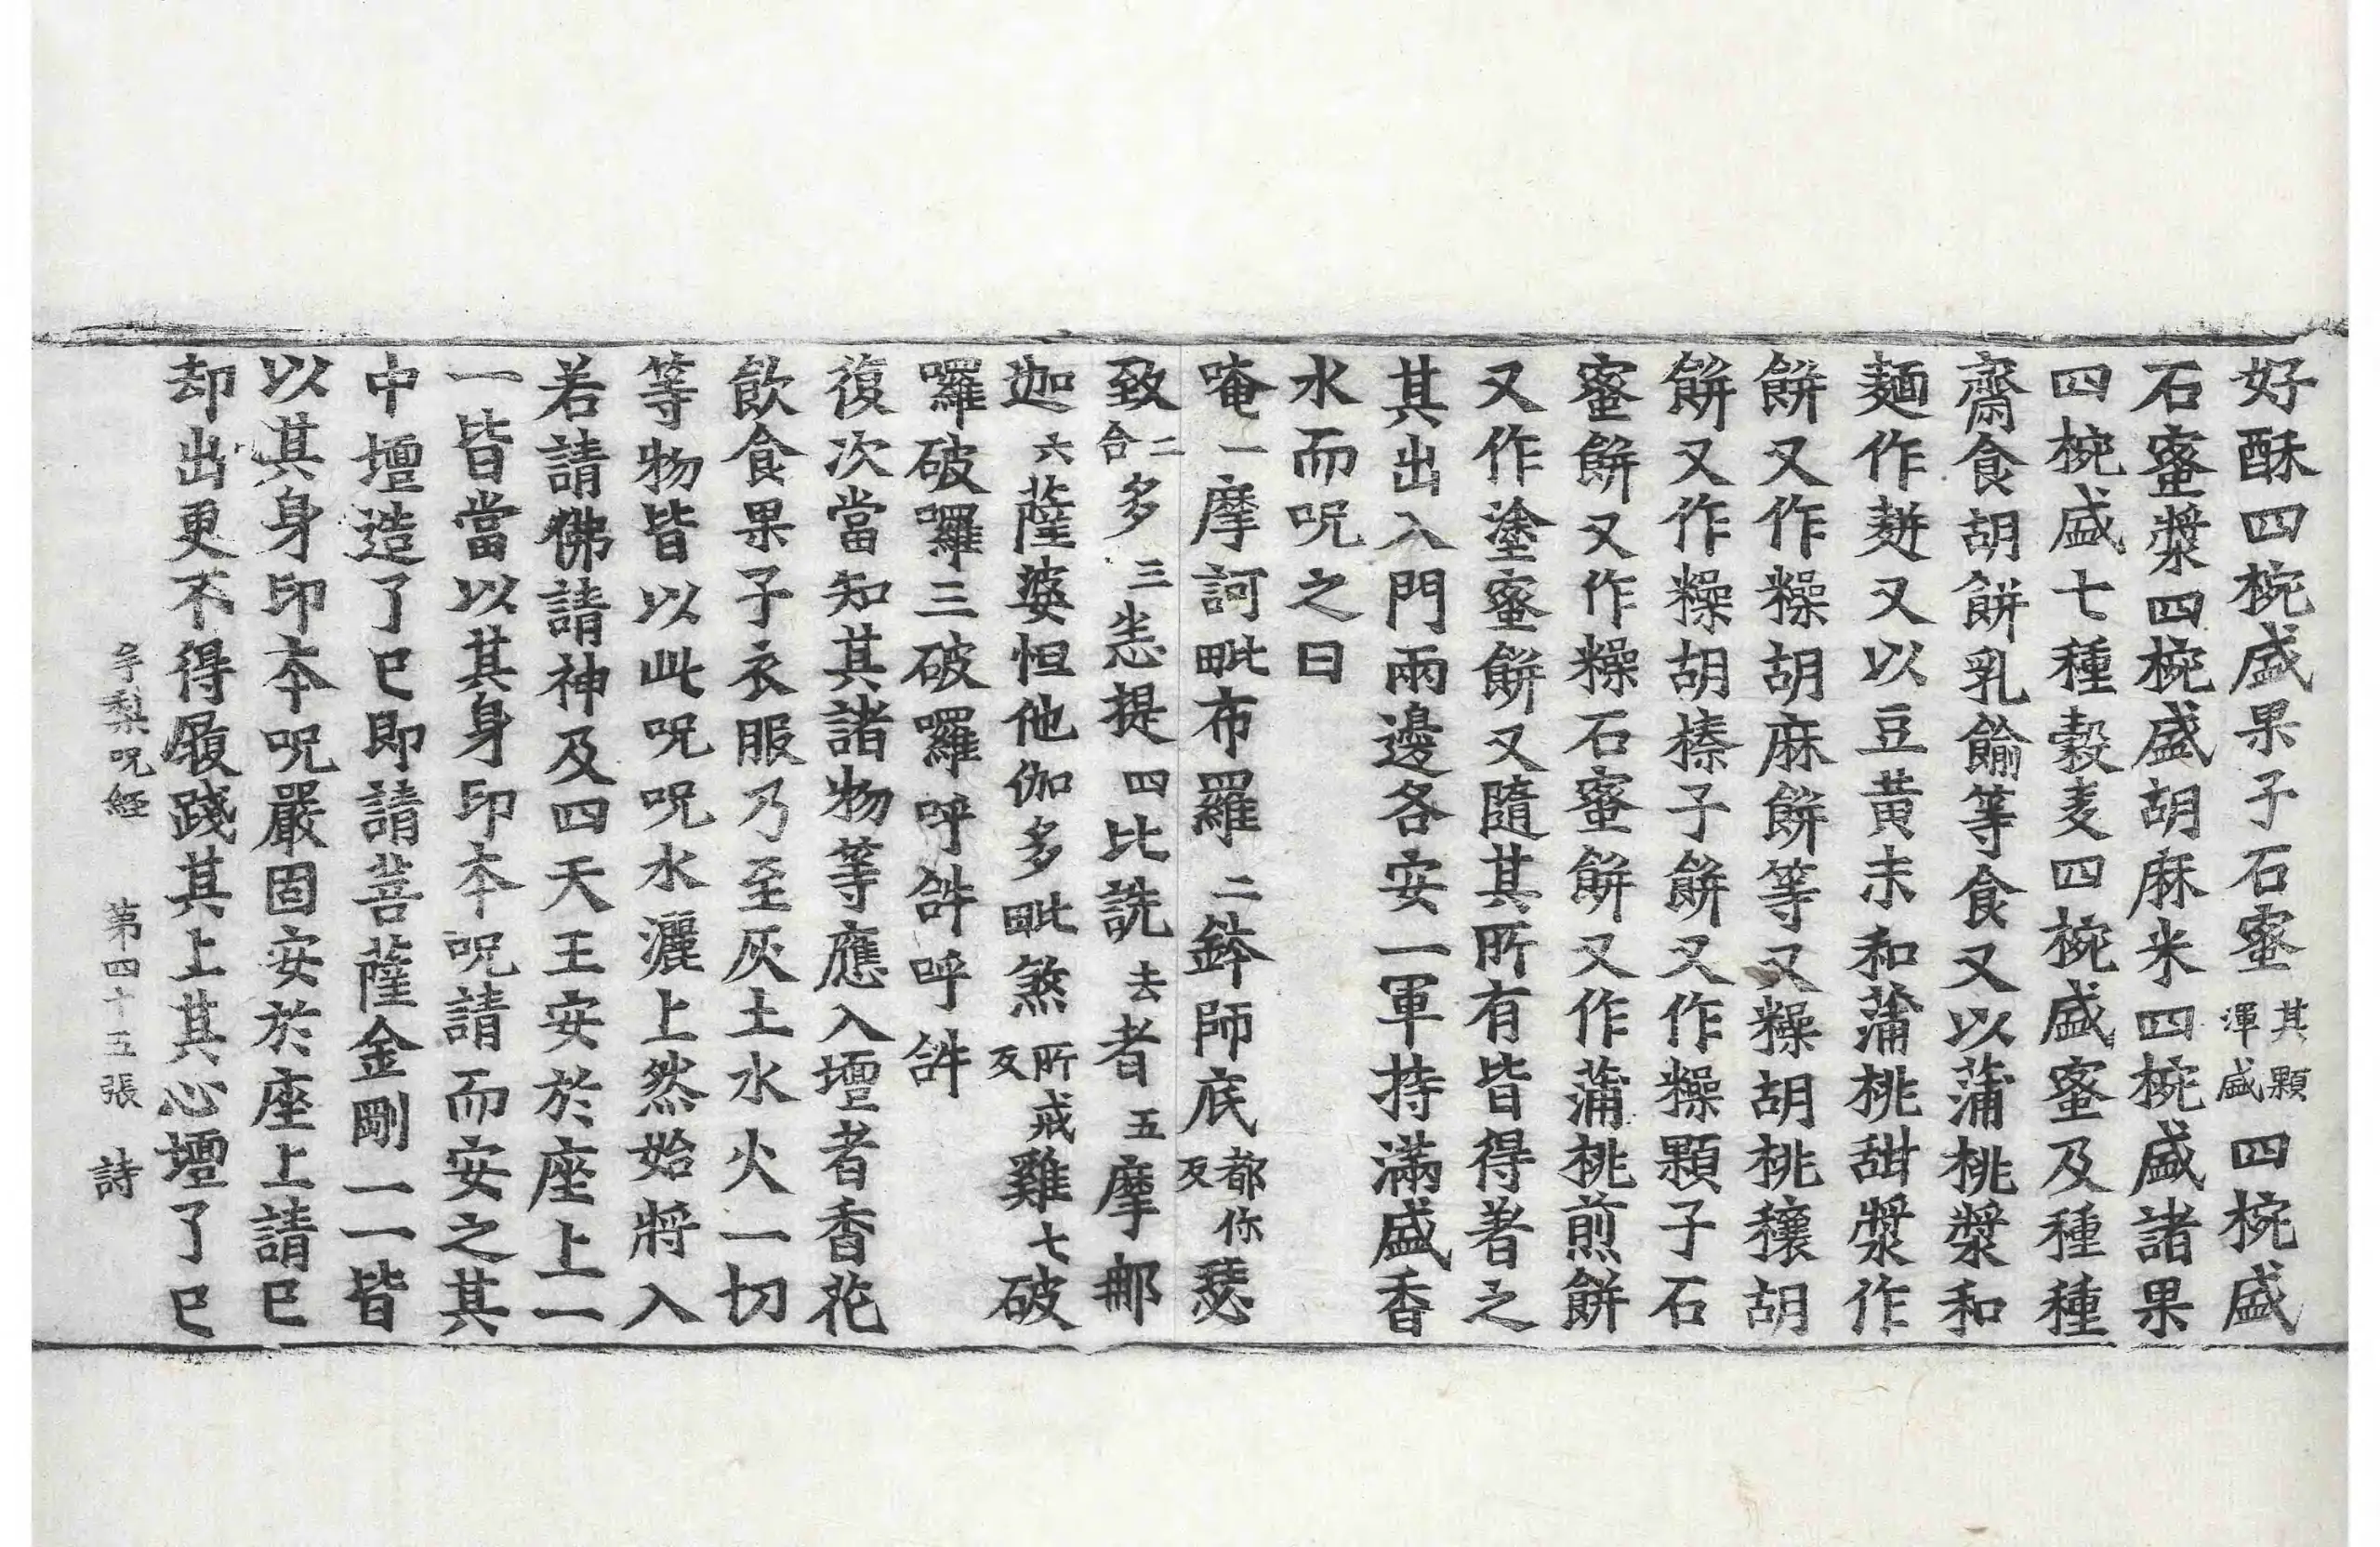 好酥四椀盛果子石蜜其顆渾盛四椀盛
石蜜漿四椀盛胡麻米四椀盛諸果
四椀盛七種穀麦四椀盛蜜及種種
齋食胡餅乳餄等食又以蒲桃漿和
麺作䴵又以豆黃末和蒲桃甜漿作
餅又作糙胡麻餅等又糙胡桃穰胡
餅又作糙胡榛子餅又作糙顆子石
蜜餅又作糙石蜜餅又作蒲桃煎餅
又作塗蜜餅又隨其所有皆得著之
其出入門兩邊各安一軍持滿盛香
水而呪之曰
唵一摩訶毗布羅二鉢師底都你反瑟
致二合多三恙提四比詵去者五摩郍
迦六薩婆怛他伽多毗煞所戒反雞七破
囉破囉三破囉呼𤙖呼𤙖
復次當知其諸物等應入壇者香花
飲食果子衣服乃至灰土水火一切
等物皆以此呪呪水灑上然始將入
若請佛請神及四天王安於座上一
一皆當以其身印本呪請而安之其
中壇造了已即請菩薩金剛一一皆
以其身印本呪嚴固安於座上請已
却出更不得履踐其上其心壇了已
牟梨呪經 第四十五張 詩